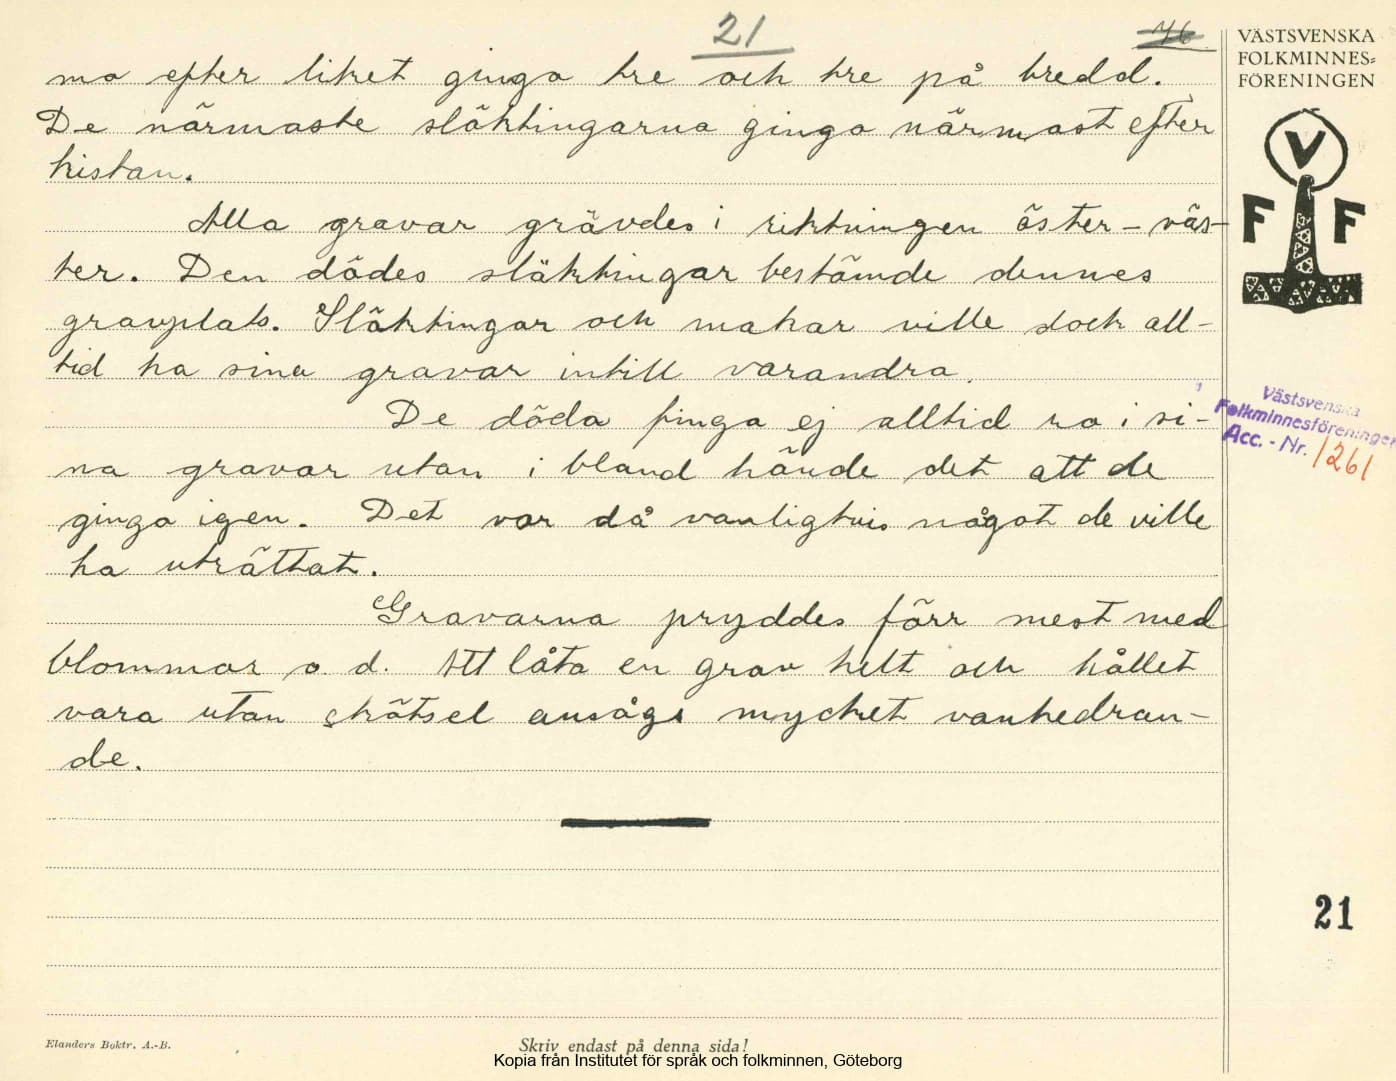 21
46
VÄSTSVENSKA
FOLKMINNES=
FÖRENINGEN
ma efter liket ginga tre och tre på bredd.
De närmaste släktingarna ginga närmast efter
kistan.
Alla gravar grävdes i riktningen öster–väs-
ter. Den dödes släktingar bestämde dennes
gravplats. Släktingar och makar ville dock all-
tid ha sina gravar intill varandra.
De döda finga ej alltid ro i si-
na gravar utan i bland hände det att de
ginga igen. Det var då vanligtvis något de ville
ha uträttat.
Gravarna pryddes förr mest med
blommor o. d. Att låta en grav helt och hållet
vara utan skötsel ansågs mycket vanhedran-
de.
V
F F
Västsvenska
Folkminnesföreningen
Acc. - Nr. 1261
21
Elanders Boktr. A.-B.
Skriv endast på denna sida!
Kopia från Institutet för språk och folkminnen, Göteborg